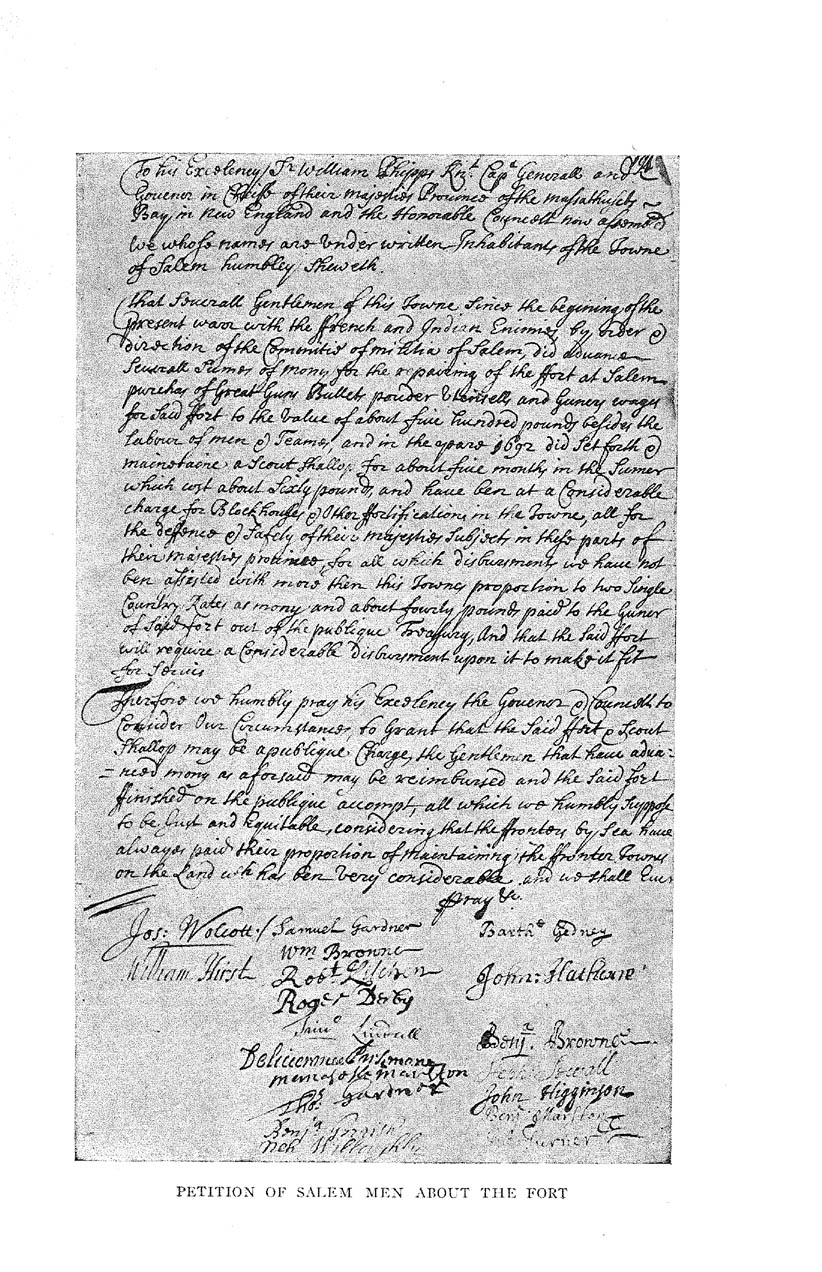 To his Excelency Sr William Phipps Knt. Capt Generall and
Govenor in Cheife of their majesties Province of the massathusets
Bay in New England and the Honorable Councell now assembld
We whose names are Under written Inhabitants of the Towne
of Salem humbley Sheweth.
That Severall Gentlemen of this Towne Since the begining of the
Present warr with the ffrench and Indian Enimies by order &
direction of the Committie of militia of Salem, did advance
Severall Sumes of mony for the repairing of the ffort at Salem
purchas of Great Guns Bullets pouder Utensells and Guners wages
for Said ffort to the value of about five hundred pounds besides the
Labour of men & Teames, and in the yeare 1692 did Set forth &
mainetaine a Scout Shallop for about five months in the Sumer
which cost about Sixty pounds, and have ben at a Considerable
charge for Blockhouses & Other ffortifications in the Towne, all for
the deffence & Safety of their majesties Subjects in these parts of
their majesties province, for all which disbursments we have not
ben assisted with more then this Townes proportion to two Single
Country Rates as mony and about fourty pounds paid to the Guner
of Said fort out of the publique Treasury, And that the Said ffort
will require a Considerable disbursment upon it to make it fit
for Servis
Therfore we humbly pray his Excelency the Govenor & Councell to
Consider Our Circumstances, to Grant that the Said ffort & Scout
Shallop may be a publique Charge, the Gentlemen that have adva=
=nced mony as aforsaid may be reimbursed and the Said fort
ffinished on the publique accompt, all which we humbly Suppose
to be Just and Equitable, considering that the ffronters by Sea have
alwayes paid their proportion of maintaining the ffronter Townes
on the Land wch has ben very considerable and we shall Ever
Pray &c.
Jos: Wolcott Samuel Gardner Barthо Gedney
Wm Browne
William Hirst Robt Kitchen John: Hathorne
Roger Derby
Saml Lindall Benja. Browne
Deliverance Parkman
manaseh marston Sewall
Thos Gardner John Higginson
Benj Marston
Benja
Turner
PETITION OF SALEM MEN ABOUT THE FORT